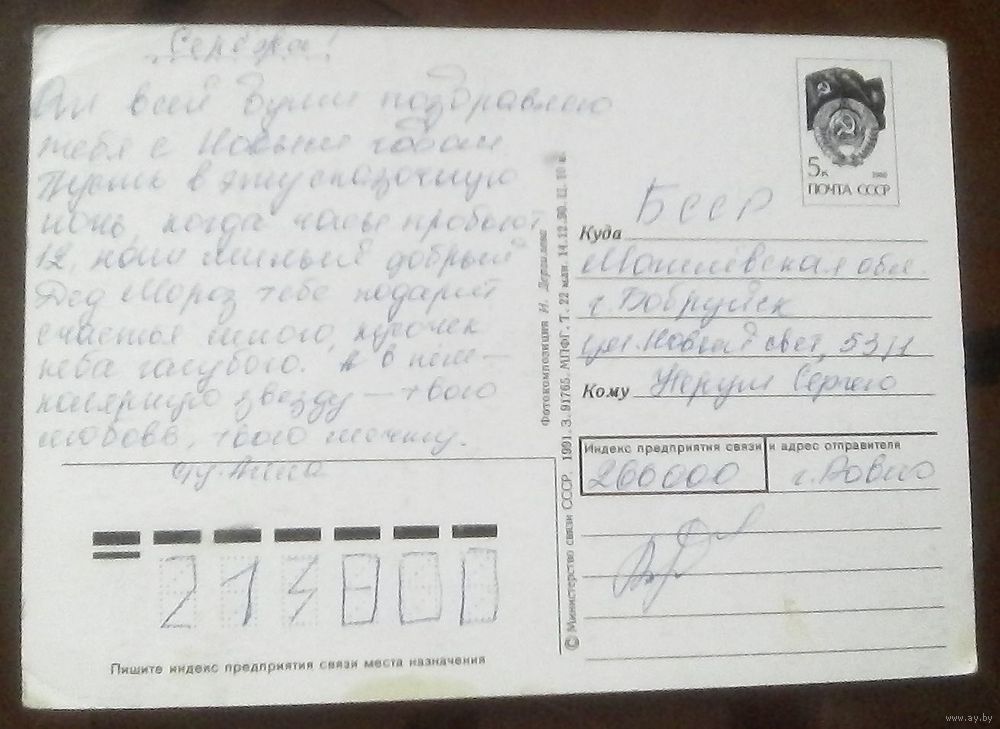 Серёжа!
От всей души поздравляю
тебя с Новым годом
Пусть в эту сказочную
ночь, когда часы пробьют
12, наш милый добрый
Дед Мороз тебе подарит
счастья много, кусочек
неба голубого, а в нём —
полярную звезду — твою
любовь, твою мечту.
Анна
213800
Пишите индекс предприятия связи места назначения
© Министерство связи СССР. 1991. З. 91765. МПФГ. Т. 22 млн. 14.12.90. Ц. 10 к.
Фотокомпозиция И. Дергилева
5к 1988
ПОЧТА СССР
БССР
Куда
Могилёвская обл
г. Бобруйск
ул. Новый свет, 53
Кому Сергею
Индекс предприятия связи и адрес отправителя
266000 г. Ровно
www.ay.by